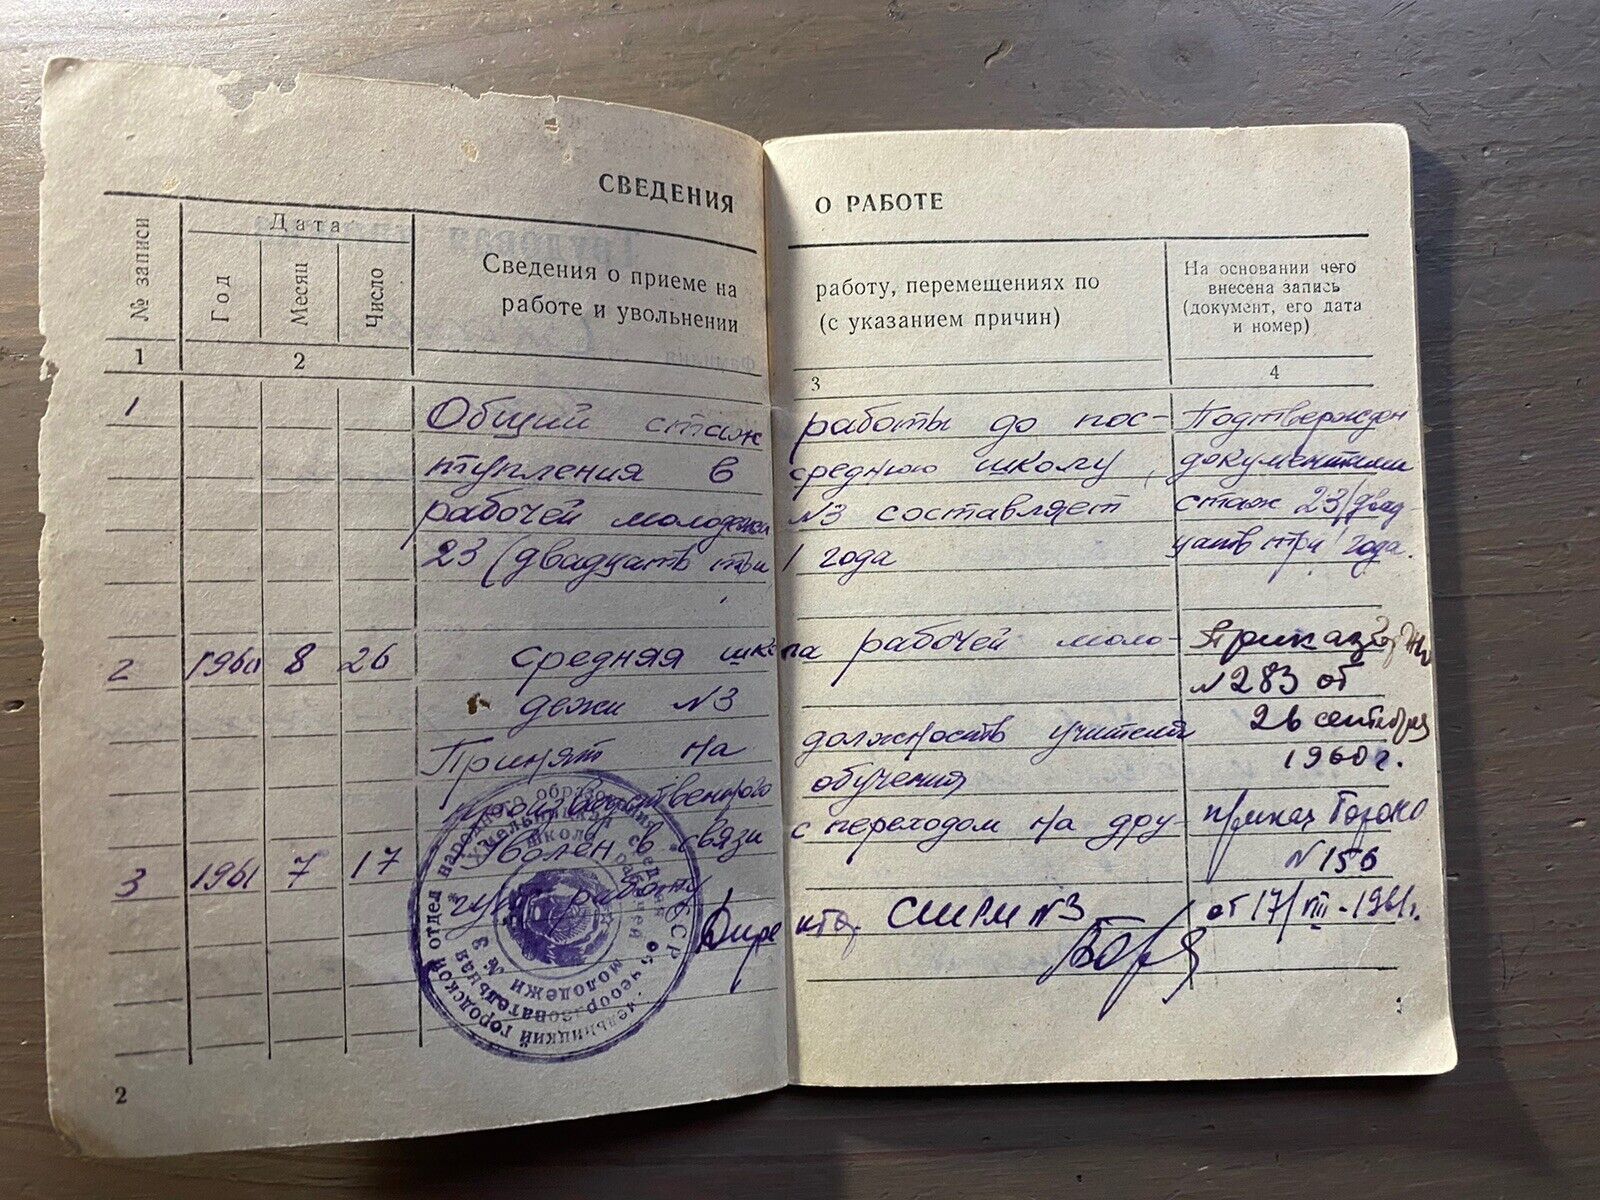 СВЕДЕНИЯ О РАБОТЕ
№ записи
Дата
Год
Месяц
Число
Сведения о приеме на работу, перемещениях по
работе и увольнении (с указанием причин)
На основании чего
внесена запись
(документ, его дата
и номер)
1 2 3 4
1 Общий стаж работы до пос- Подтвержден
тупления в среднюю школу документами
рабочей молодежи №3 составляет стаж 23/двад
23 (двадцать три) года цать три/ года.
2 1960 8 26 средняя школа рабочей моло- Приказ
дежи №3 №283 от
Принят на должность учителя 26 сентября
производственного обучения 1960 г.
3 1961 7 17 Уволен в связи с переходом на дру- приказ Гороно
гую работу №156
Директор СШРМ №3 от 17/VIII-1961г.
народного образования
городской отдел
средняя
общеобразовательная
школа
рабочей
молодежи
№ 3
2